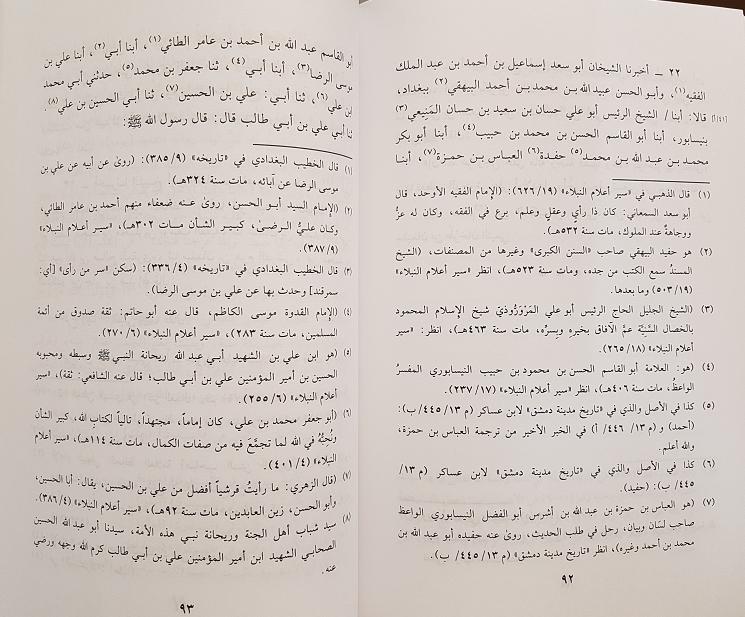 ٢٢ ـ أخبرنا الشيخان أبو سعد إسماعيل بن أحمد بن عبد الملك
الفقيه(١)، وأبو الحسن عبيد الله بن محمد بن أحمد البيهقي(٢) ببغداد،
[١٤١أ] قالا: أبنا/ الشيخ الرئيس أبو علي حسان بن سعيد بن حسان المَنِيعي(٣)
بنيسابور، أبنا أبو القاسم الحسن بن محمد بن حبيب(٤)، أبنا أبو بكر
محمد بن عبد الله بن محمد(٥) حفدة(٦) العباس بن حمزة(٧)، أبنا
(١) قال الذهبي في «سير أعلام النبلاء» (١٩/ ٦٢٦): (الإمام الفقيه الأوحد، قال
أبو سعد السمعاني: كان ذا رأي وعقل وعلم، برع في الفقه، وكان له عزٌّ
ووجاهةٌ عند الملوك، مات سنة ٥٣٢هـ).
(٢) هو حفيد البيهقي صاحب «السنن الكبرى» وغيرها من المصنفات، (الشيخ
المسند سمع الكتب من جده، ومات سنة ٥٢٣هـ)، انظر «سير أعلام النبلاء»
(١٩/ ٥٠٣) وما بعدها.
(٣) (الشيخ الجليل الحاج الرئيس أبو علي المَرْوَرُّوذيّ شيخ الإسلام المحمود
بالخصال السَّنِيَّة عمَّ الآفاق بخيره وبِرِّه، مات سنة ٤٦٣هـ)، انظر: «سير
أعلام النبلاء» (١٨/ ٢٦٥).
(٤) (هو: العلامة أبو القاسم الحسن بن محمود بن حبيب النيسابوري المفسرُ
الواعظ، مات سنة ٤٠٦هـ)، انظر «سير أعلام النبلاء» (١٧/ ٢٣٧).
(٥) كذا في الأصل والذي في «تاريخ مدينة دمشق» لابن عساكر (م ١٣/ ٤٤٥/ ب):
(أحمد) و (م ١٣/ ٤٤٦/ أ) في الخبر الأخير من ترجمة العباس بن حمزة،
والله أعلم.
(٦) كذا في الأصل والذي في «تاريخ مدينة دمشق» لابن عساكر (م ١٣/
٤٤٥/ ب): (حفيد).
(٧) (هو العباس بن حمزة بن عبد الله بن أشرس أبو الفضل النيسابوري الواعظ
صاحب لسَان وبيان، رحل في طلب الحديث، روىٰ عنه حفيده أبو عبد الله بن
محمد بن أحمد وغيره)، انظر «تاريخ مدينة دمشق» (م ١٣/ ٤٤٥/ ب).
٩٢
أبو القاسم عبد الله بن أحمد بن عامر الطائي(١)، أبنا أبي(٢)، أبنا علي بن
موسى الرضا(٣)، أبنا أبي(٤)، ثنا جعفر بن محمد(٥)، حدثني أبي محمد
ابن علي(٦)، ثنا أبي: علي بن الحسين(٧)، ثنا أبي الحسين بن علي(٨)،
ثنا أبي علي بن أبي طالب قال: قال رسول الله ﷺ:
(١) قال الخطيب البغدادي في «تاريخه» (٩/ ٣٨٥): (روىٰ عن أبيه عن علي بن
موسى الرضا عن آبائه، مات سنة ٣٢٤هـ).
(٢) (الإمام السيد أبو الحسن، روىٰ عنه ضعفاء منهم أحمد بن عامر الطائي،
وكان عليُّ الرضىٰ، كبير الشأن مات ٣٠٢هـ)، «سير أعلام النبلاء»
(٩/ ٣٨٧).
(٣) قال الخطيب البغدادي في «تاريخه» (٤/ ٣٣٦): (سكن «سر من رأى» [أي:
سمرقند] وحدث بها عن علي بن موسى الرضا).
(٤) (الإمام القدوة موسى الكاظم، قال عنه أبو حاتم: ثقة صدوق من أئمة
المسلمين، مات سنة ٢٨٣)، «سير أعلام النبلاء» (٦/ ٢٧٠).
(٥) (هو ابن علي بن الشهيد أبي عبد الله ريحانة النبي ﷺ وسبطه ومحبوبه
الحسين بن أمير المؤمنين علي بن أبي طالب؛ قال عنه الشافعي: ثقة)، «سير
أعلام النبلاء» (٦/ ٢٥٥).
(٦) (أبو جعفر محمد بن علي، كان إماماً، مجتهداً، تالياً لكتاب الله، كبير الشأن
ونُحبُّه في الله لما تجمَّع فيه من صفات الكمال، مات سنة ١١٤هـ)، «سير أعلام
النبلاء» (٤/ ٤٠١).
(٧) (قال الزهري: ما رأيتُ قرشياً أفضل من علي بن الحسين، يقال: أبا الحسين،
وأبو الحسن، زين العابدين، مات سنة ٩٢هـ)، «سير أعلام النبلاء» (٤/ ٣٨٦).
(٨) سيد شباب أهل الجنة وريحانة نبي هذه الأمة، سيدنا أبو عبد الله الحسين
الصحابي الشهيد ابن أمير المؤمنين علي بن أبي طالب كرم الله وجهه ورضي
عنه.
٩٣